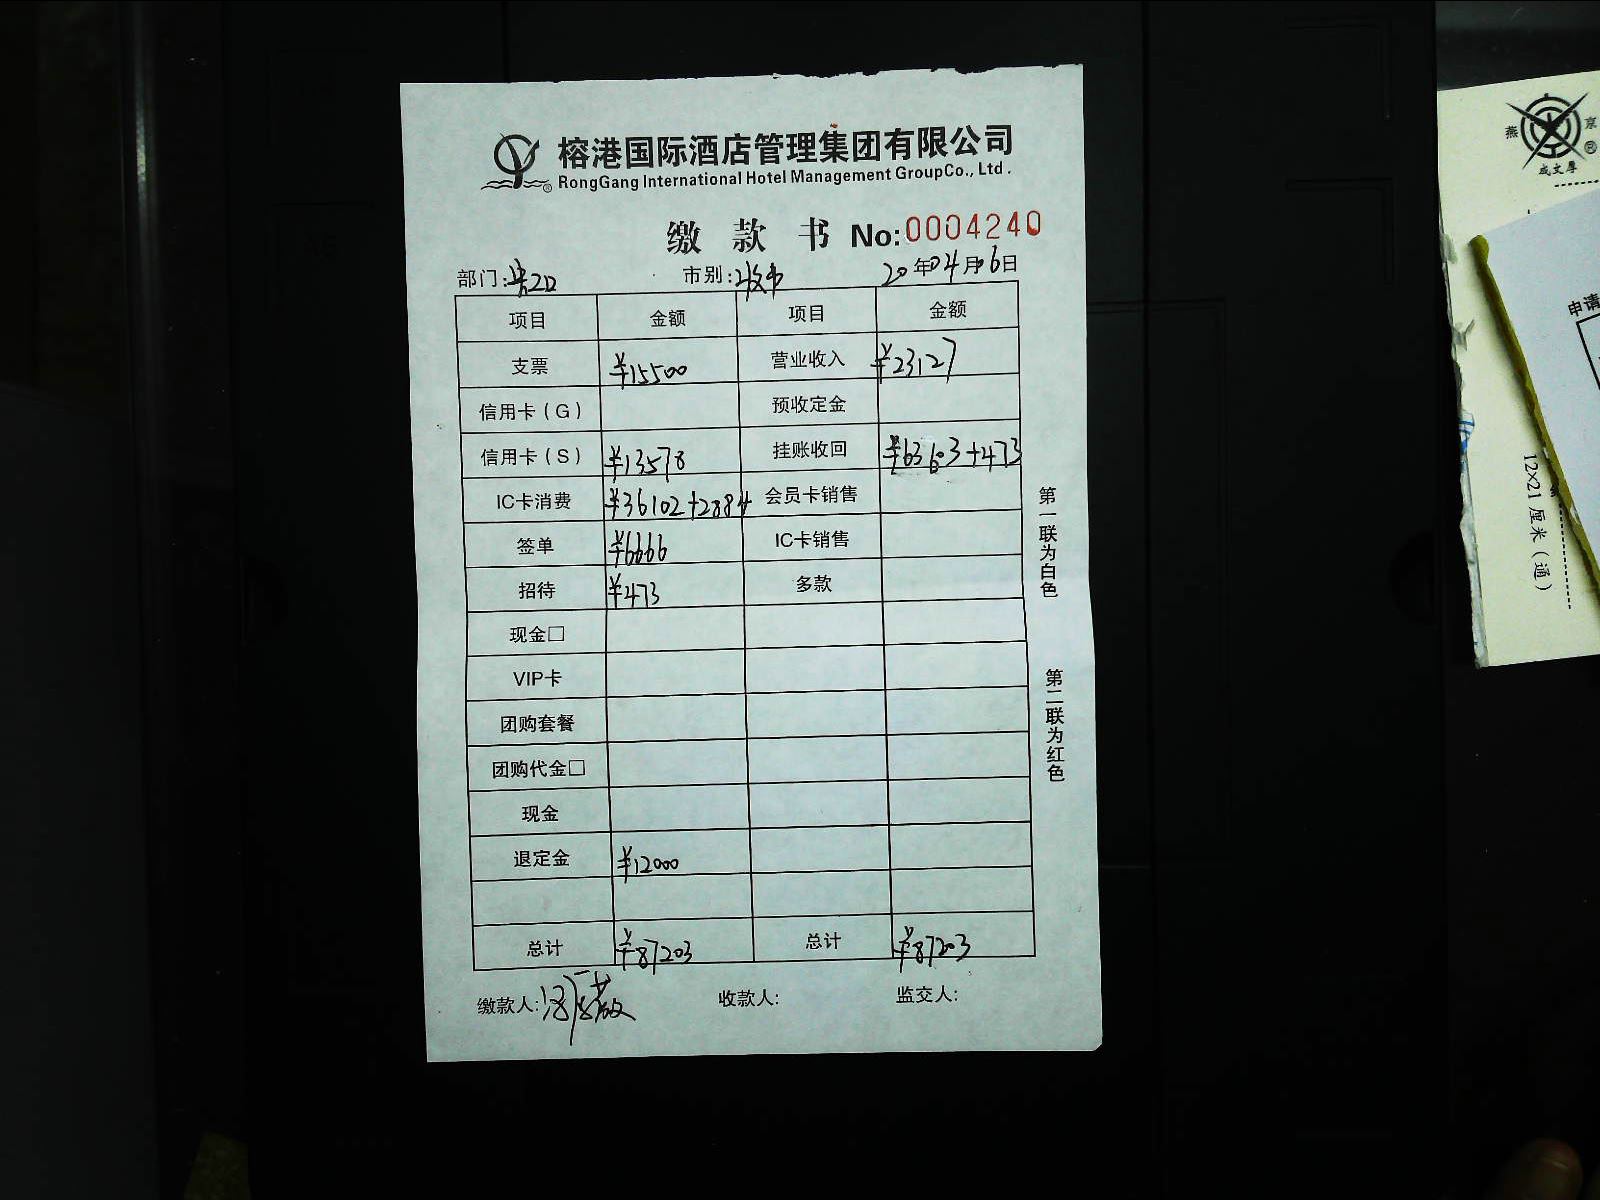 榕港国际酒店管理集团有限公司
RongGang International Hotel Management GroupCo., Ltd .
缴 款 书 No:0004240
部门: 市别: 20年04月06日
项目 金额 项目 金额
支票 ¥15500 营业收入 ¥23127
信用卡（G） 预收定金
信用卡（S） ¥13578 挂账收回 ¥63603+473
IC卡消费 ¥36102+2884 会员卡销售
签单 ¥6666 IC卡销售
招待 ¥473 多款
现金□
VIP卡
团购套餐
团购代金□
现金
退定金 ¥12000
总计 ¥87203 总计 ¥87203
缴款人: 收款人: 监交人:
第一联为白色
第二联为红色
燕 京
成文厚
12×21 厘米（通）
申请